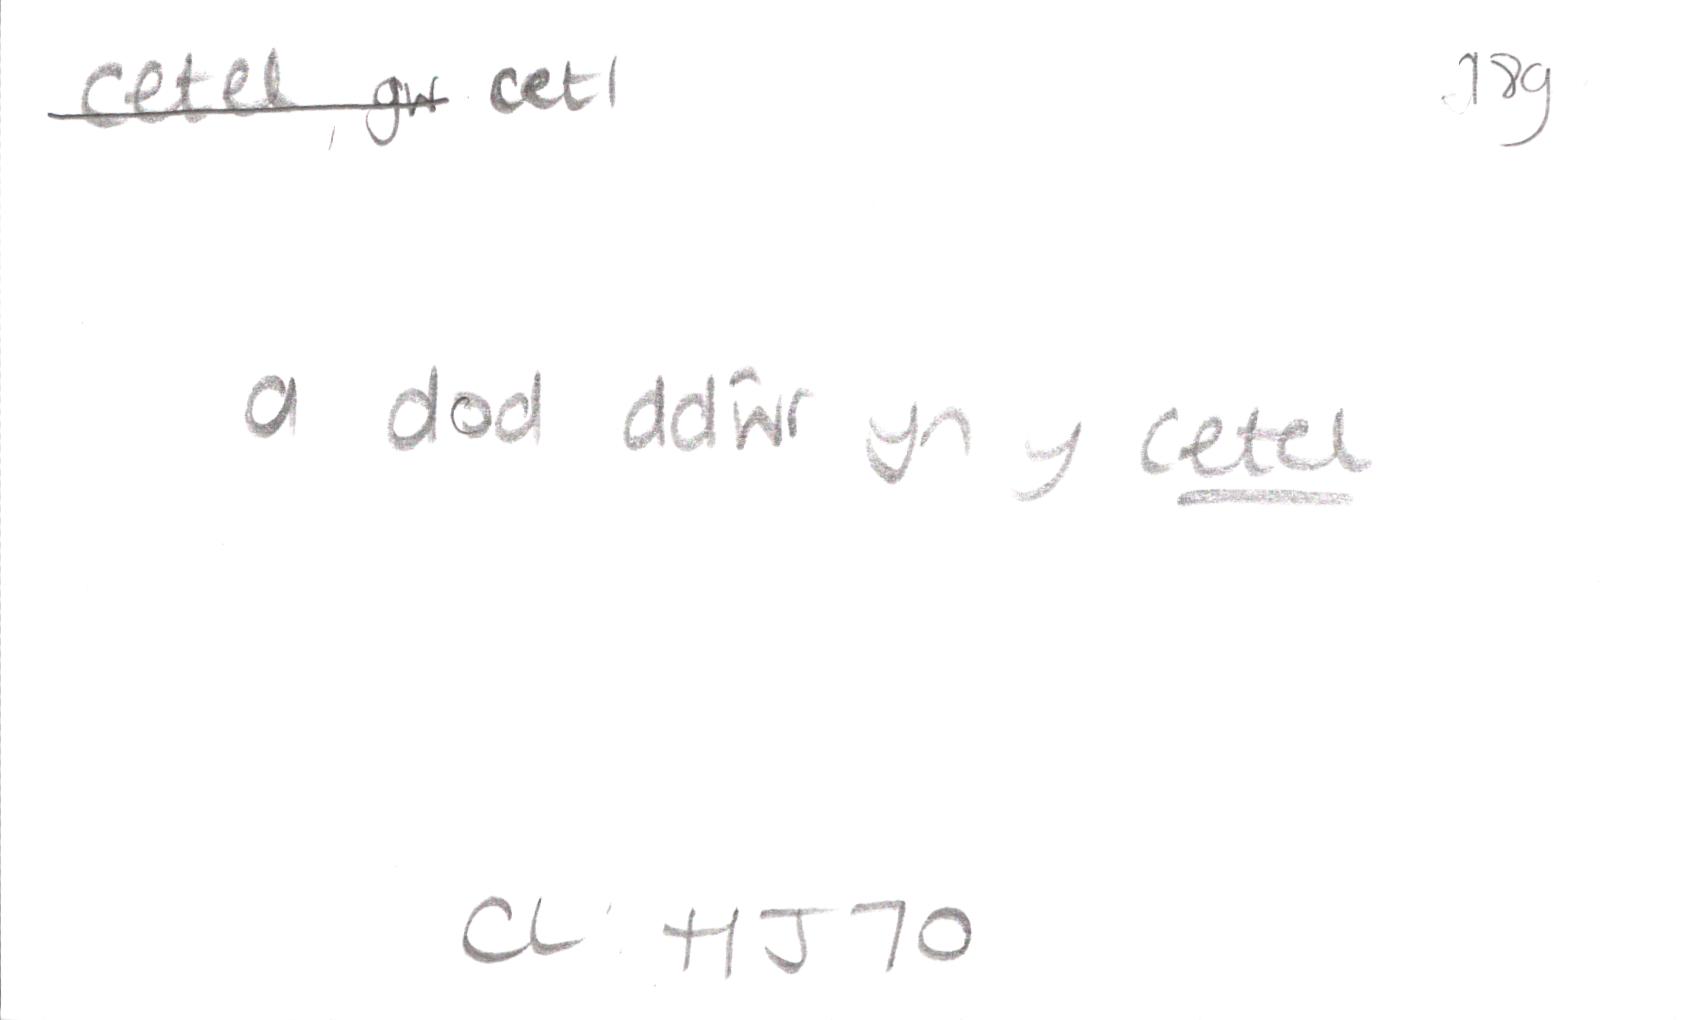 cetel, gw cetl 18g
a dod ddŵr yn y cetel
CL: HJ70